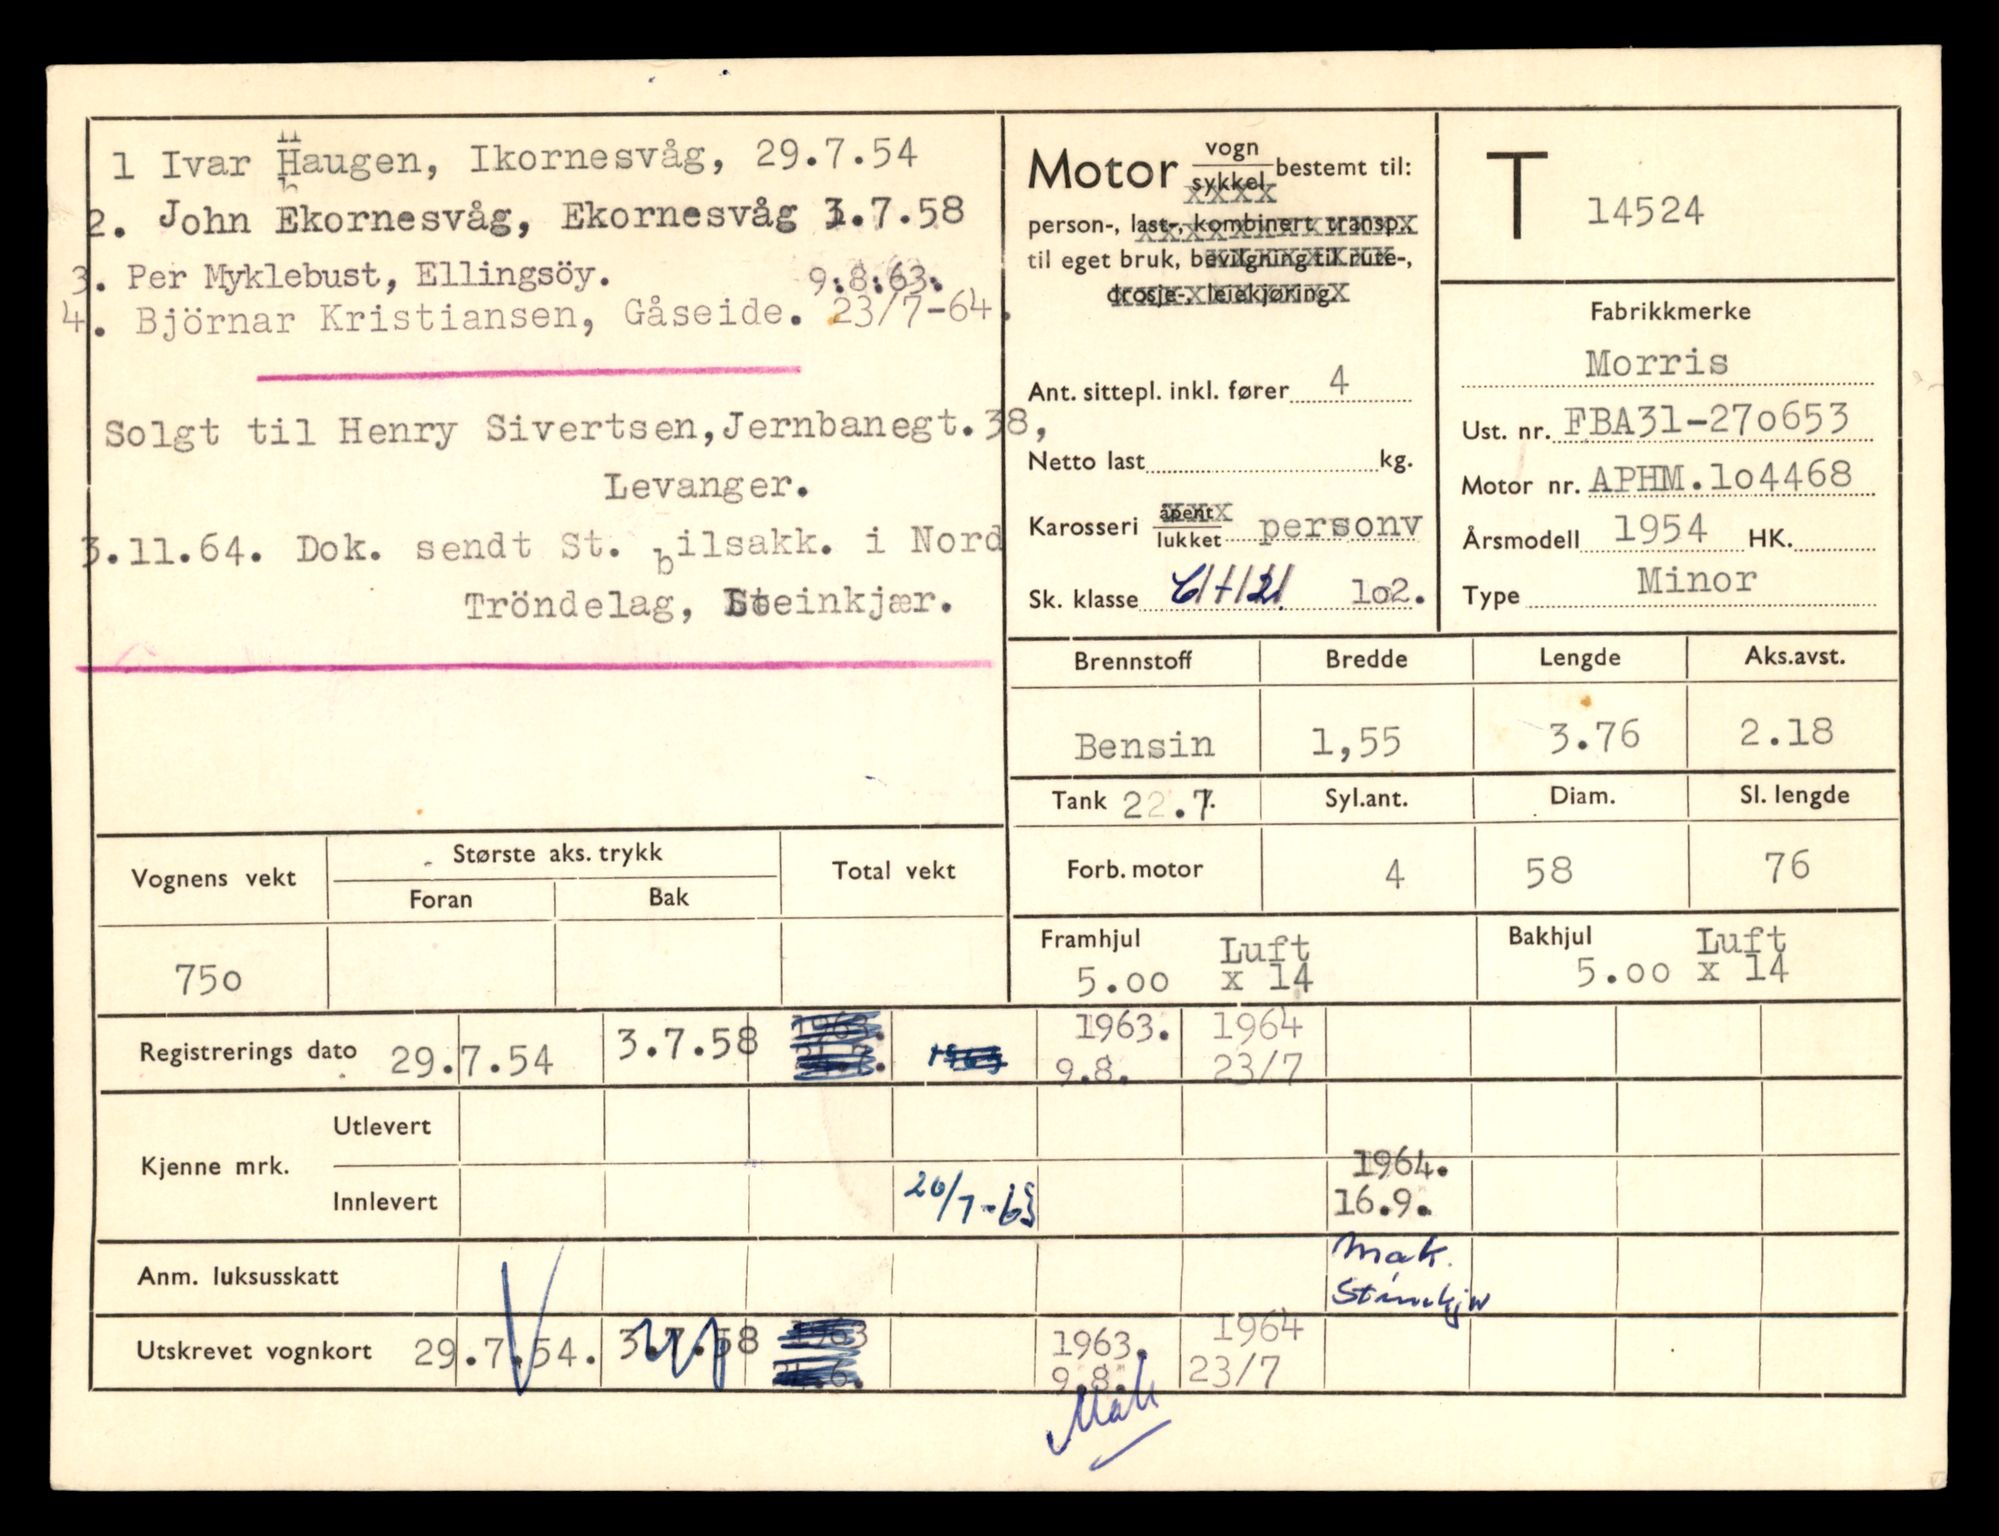 1 Ivar Haugen, Ikornesvåg, 29.7.54
2. John Ekornesvåg, Ekornesvåg 3.7.58
3. Per Myklebust, Ellingsöy. 9.8.63.
4. Björnar Kristiansen, Gåseide. 23/7-64.
Solgt til Henry Sivertsen, Jernbanegt. 38,
Levanger.
3.11.64. Dok. sendt St. bilsakk. i Nord
Tröndelag, Steinkjær.
Motor vogn/sykkel bestemt til:
person-, last-, kombinert transp.
til eget bruk, bevilgning til rute-,
drosje-, leiekjøring.
Ant. sittepl. inkl. fører 4
Netto last kg.
Karosseri åpent/lukket personv
Sk. klasse 102.
T 14524
Fabrikkmerke
Morris
Ust. nr. FBA31-270653
Motor nr. APHM.104468
Årsmodell 1954 HK.
Type Minor
Brennstoff Bredde Lengde Aks.avst.
Bensin 1,55 3.76 2.18
Tank 22.7 Syl.ant. Diam. Sl. lengde
Forb. motor 4 58 76
Framhjul Luft Bakhjul Luft
5.00 x 14 5.00 x 14
Vognens vekt Største aks. trykk Total vekt
Foran Bak
750
Registrerings dato 29.7.54 3.7.58 1963. 9.8. 1964 23/7
Kjenne mrk.
Utlevert
Innlevert 20/7-63 1964. 16.9.
Anm. luksusskatt Mak.
Utskrevet vognkort 29.7.54. 3.7.58 1963 1963. 9.8. 1964 23/7
Mak